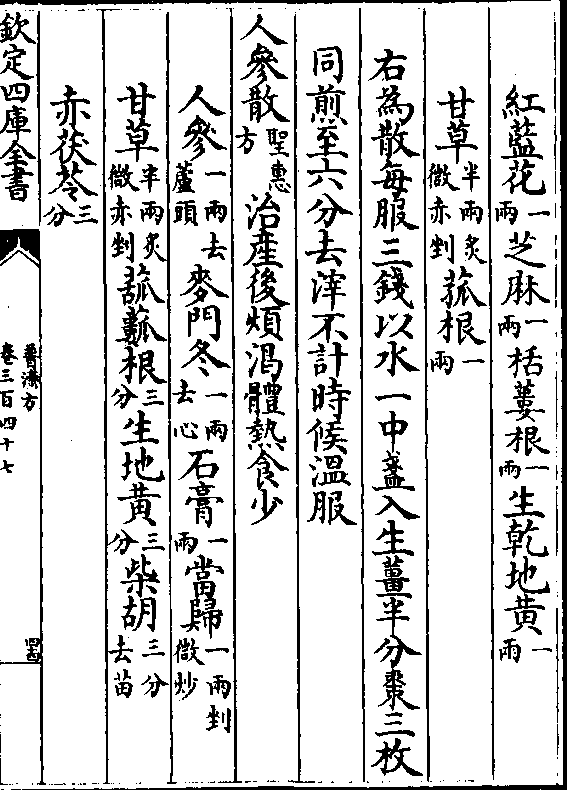 紅藍花一兩芝麻一兩栝蔞根一兩生乾地黄一兩
甘草半兩炙微赤剉菰根一兩
右為散每服三錢以水一中盞入生薑半分棗三枚
同煎至六分去滓不計時候温服
人參散聖惠方治産後煩渴體熱食少
人參一兩去蘆頭麥門冬一兩去心石膏一兩當歸一兩剉微炒
甘草半兩炙微赤剉菰蔞根三分生地黄三分柴胡三分去苗
赤茯苓三分
欽定四庫全書
普濟方
卷三百四十七